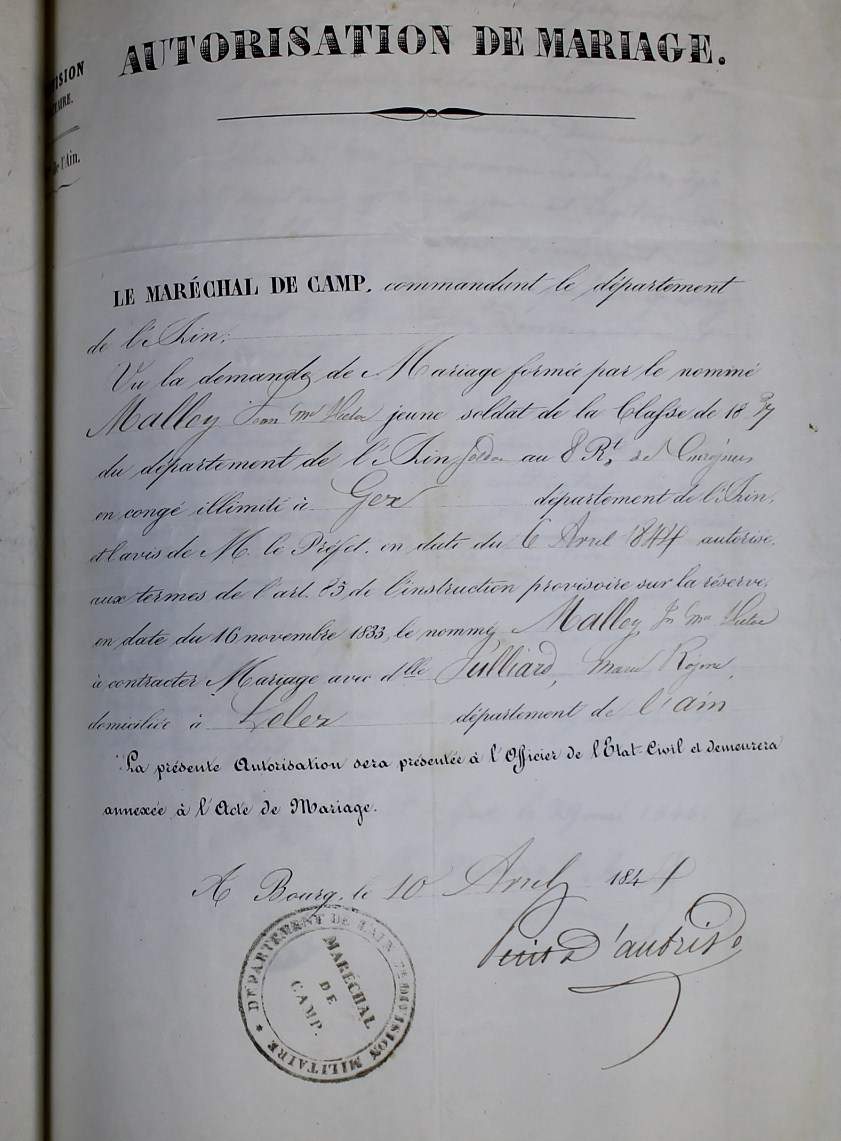 AUTORISATION DE MARIAGE.
l'Ain.
LE MARÉCHAL DE CAMP, commandant le département
de l'Ain;
Vu la demande de Mariage formée par le nommé
Malley Jean Mie Victor jeune soldat de la Classe de 1837
du département de l'Ain soldat au 8 Rt. de Cuirassiers
en congé illimité à Gex département de l'Ain,
et l'avis de M. le Préfet, en date du 6 Avril 1844 autorise,
aux termes de l'art. 83 de l'instruction provisoire sur la réserve,
en date du 16 novembre 1833, le nommé Malley, Jn Mie Victor
à contracter Mariage avec dlle Julliard, Marie
domiciliée à Lelex département de l'ain
La présente Autorisation sera présentée à l'Officier de l'Etat-Civil et demeurera
annexée à l'Acte de Mariage.
A Bourg, le 10 Avril 1844
D'aubrive
DÉPARTEMENT DE L'AIN DIVISION MILITAIRE
MARÉCHAL
DE
CAMP.